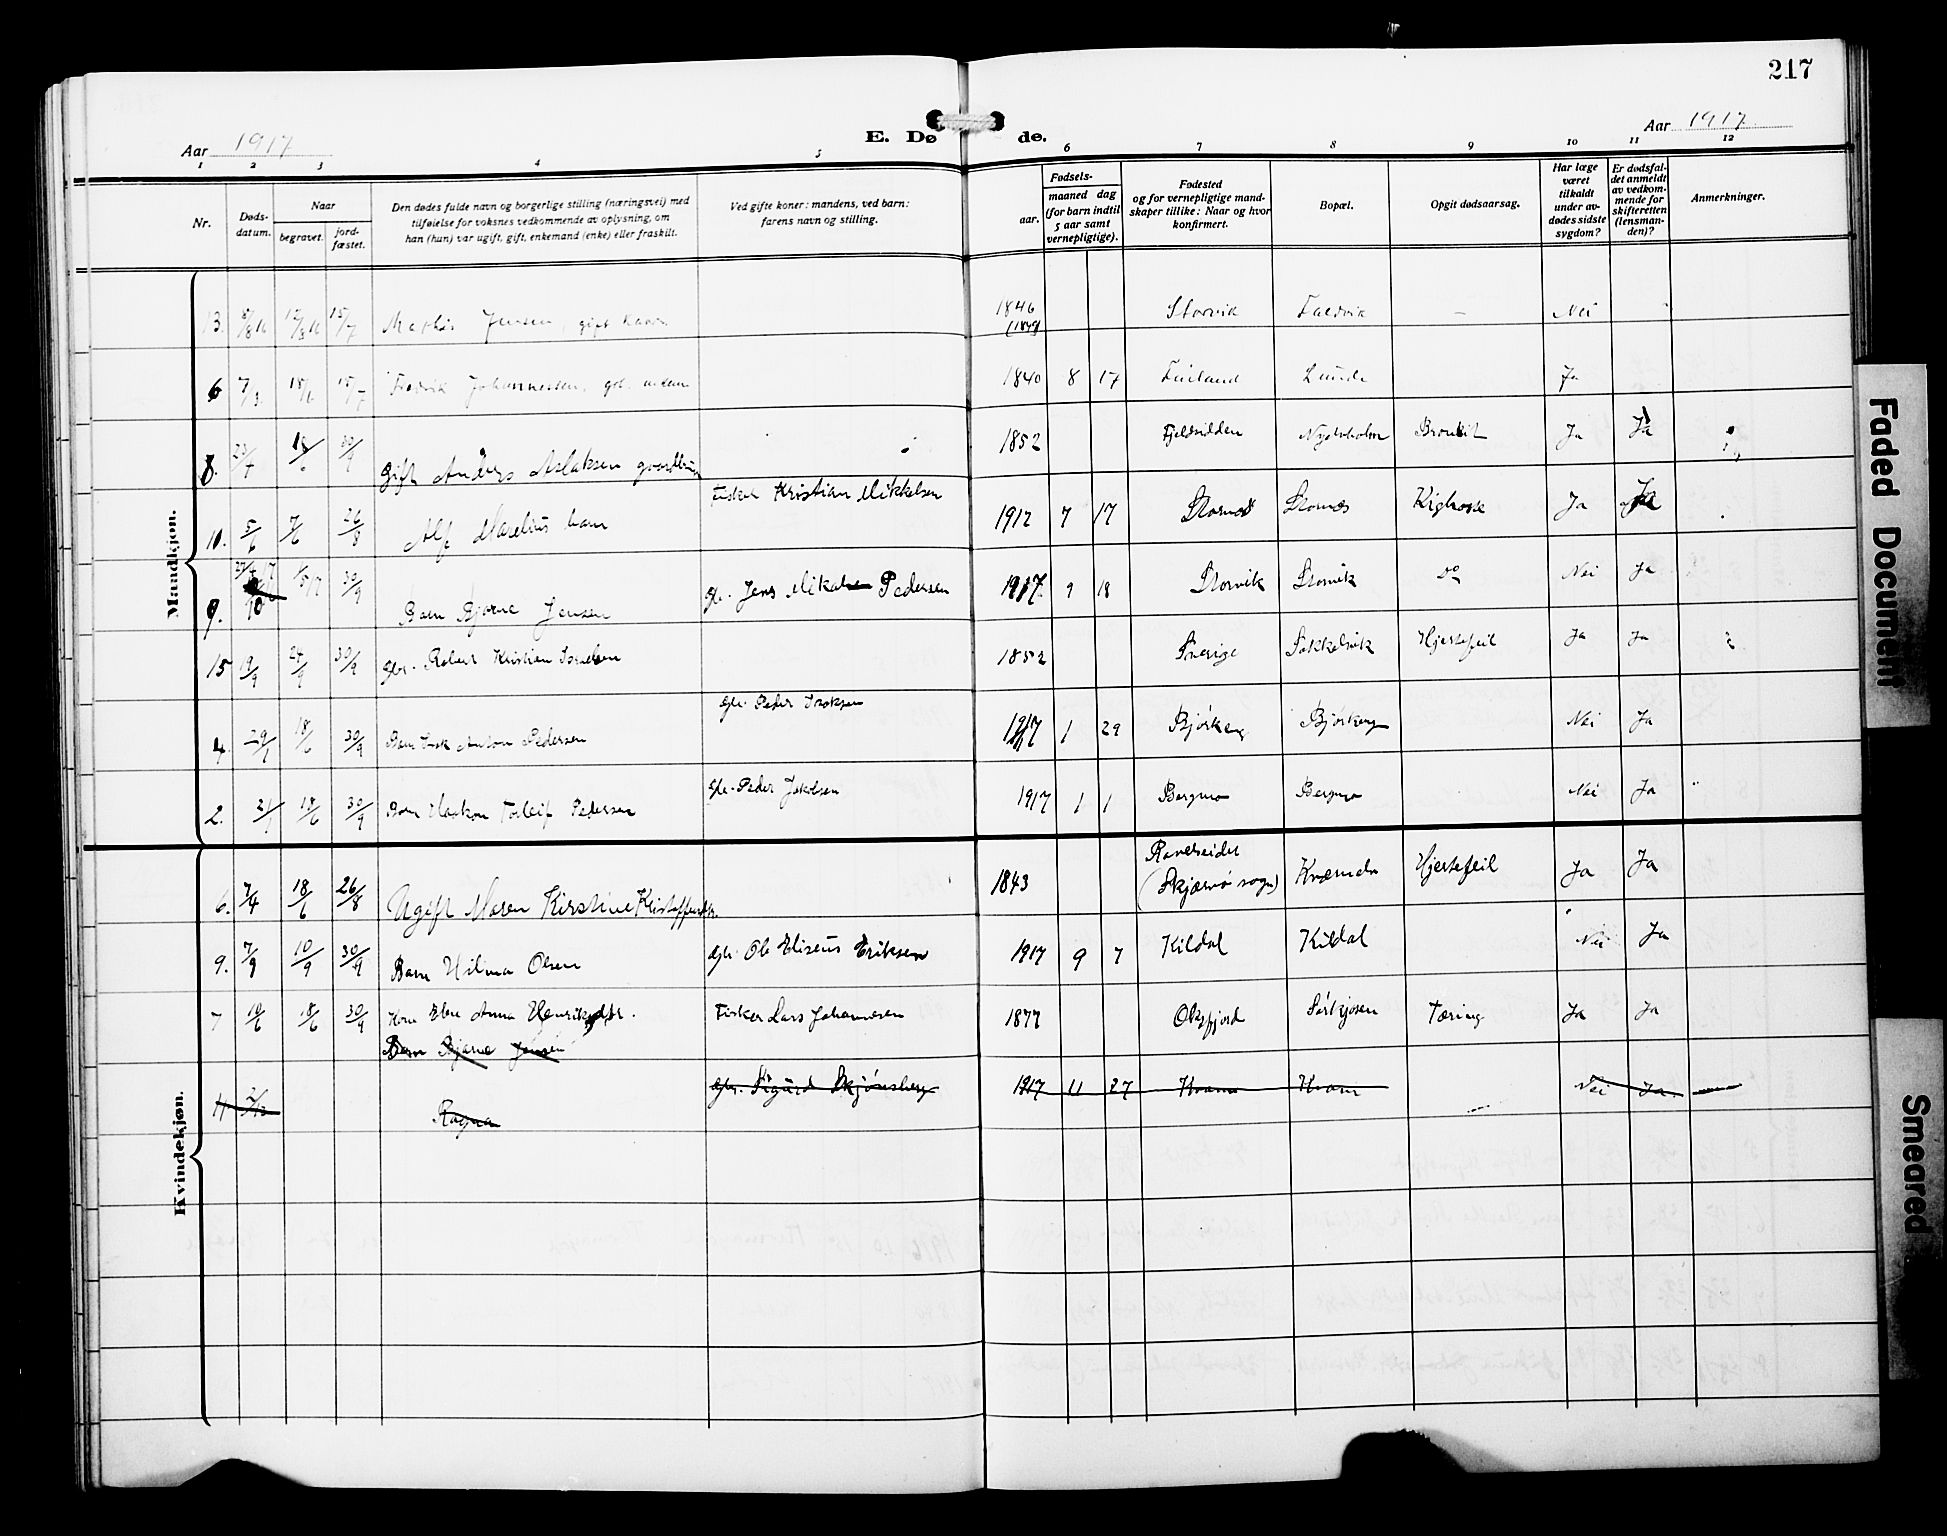 217
Aar 1917
E. Dø de.
Aar 1917
1 2 3 4 5 6 7 8 9 10 11 12
Nr.
Døds-
datum.
Naar
begravet.
jord-
fæstet.
Den dødes fulde navn og borgerlige stilling (næringsvei) med
tilføielse for voksnes vedkommende av oplysning, om
han (hun) var ugift, gift, enkemand (enke) eller fraskilt.
Ved gifte koner: mandens, ved barn:
farens navn og stilling.
Fødsels-
aar.
maaned dag
(for barn indtil
5 aar samt
vernepligtige).
Fødested
og for vernepligtige mand-
skaper tillike: Naar og hvor
konfirmert.
Bopæl.
Opgit dødsaarsag.
Har læge
været
tilkaldt
under av-
dødes sidste
sygdom?
Er dødsfal-
det anmeldt
av vedkom-
mende for
skifteretten
(lensman-
den)?
Anmerkninger.
Mandkjøn.
13. 8/8 16 12/8 16 15/7 Mathis Jensen, gift 1846 Storvik Faldvik – Nei
6 7/3 18/6 15/7 Fredrik Johannessen, 1840 8 17 Finland Lunde Ja
8. 18/ 30/9 Gift Anders Aslaksen 1852 Fjeldsidden Bronkit Ja Ja
10. 5/6 7/6 26/8 Alf Marelius barn Fisker Kristian Mikkelsen 1912 7 17 Stornes Stornes Kighoste Ja Ja
9. 30/9 Barn Bjarne Jensen Gbr. Jens Mikal Pedersen 1917 9 18 Storvik Storvik Do Nei Ja
15 19/9 24/9 30/9 Gbr. Robert Kristian Israelsen 1852 Sverige Sokkelvik Hjertefeil Ja Ja
4. 29/1 18/6 30/9 Barn Isak Anton Pedersen Gbr. Peder Isaksen 1917 1 29 Bjørkeng Bjørkeng Nei Ja
2. 21/1 18/6 30/9 Barn Haakon Torleif Pedersen Gbr. Peder Jakobsen 1917 1 1 Bergmo Bergmo Nei Ja
Kvindekjøn.
6. 7/4 18/6 26/8 Ugift Maren Kirstine Kristoffersdtr. 1843 Raveseidet
(Skjærvø sogn) Kvænda Hjertefeil Ja Ja
9. 7/9 10/9 30/9 Barn Hilma Olsen Gbr. Ole Eliseus Eriksen 1917 9 7 Kildal Kildal Nei Ja
7 10/6 18/6 30/9 Kone Anna Henriksdtr. Fisker Lars Johannesen 1877 Oksfjord Sørkjosen Tæring Ja Ja
Barn Bjarne Jensen
11 2/12 Ragna Gbr. Sigurd Skjønsberg 1917 11 27 Kvam Kvam Nei Ja
Faded Document
Smeared